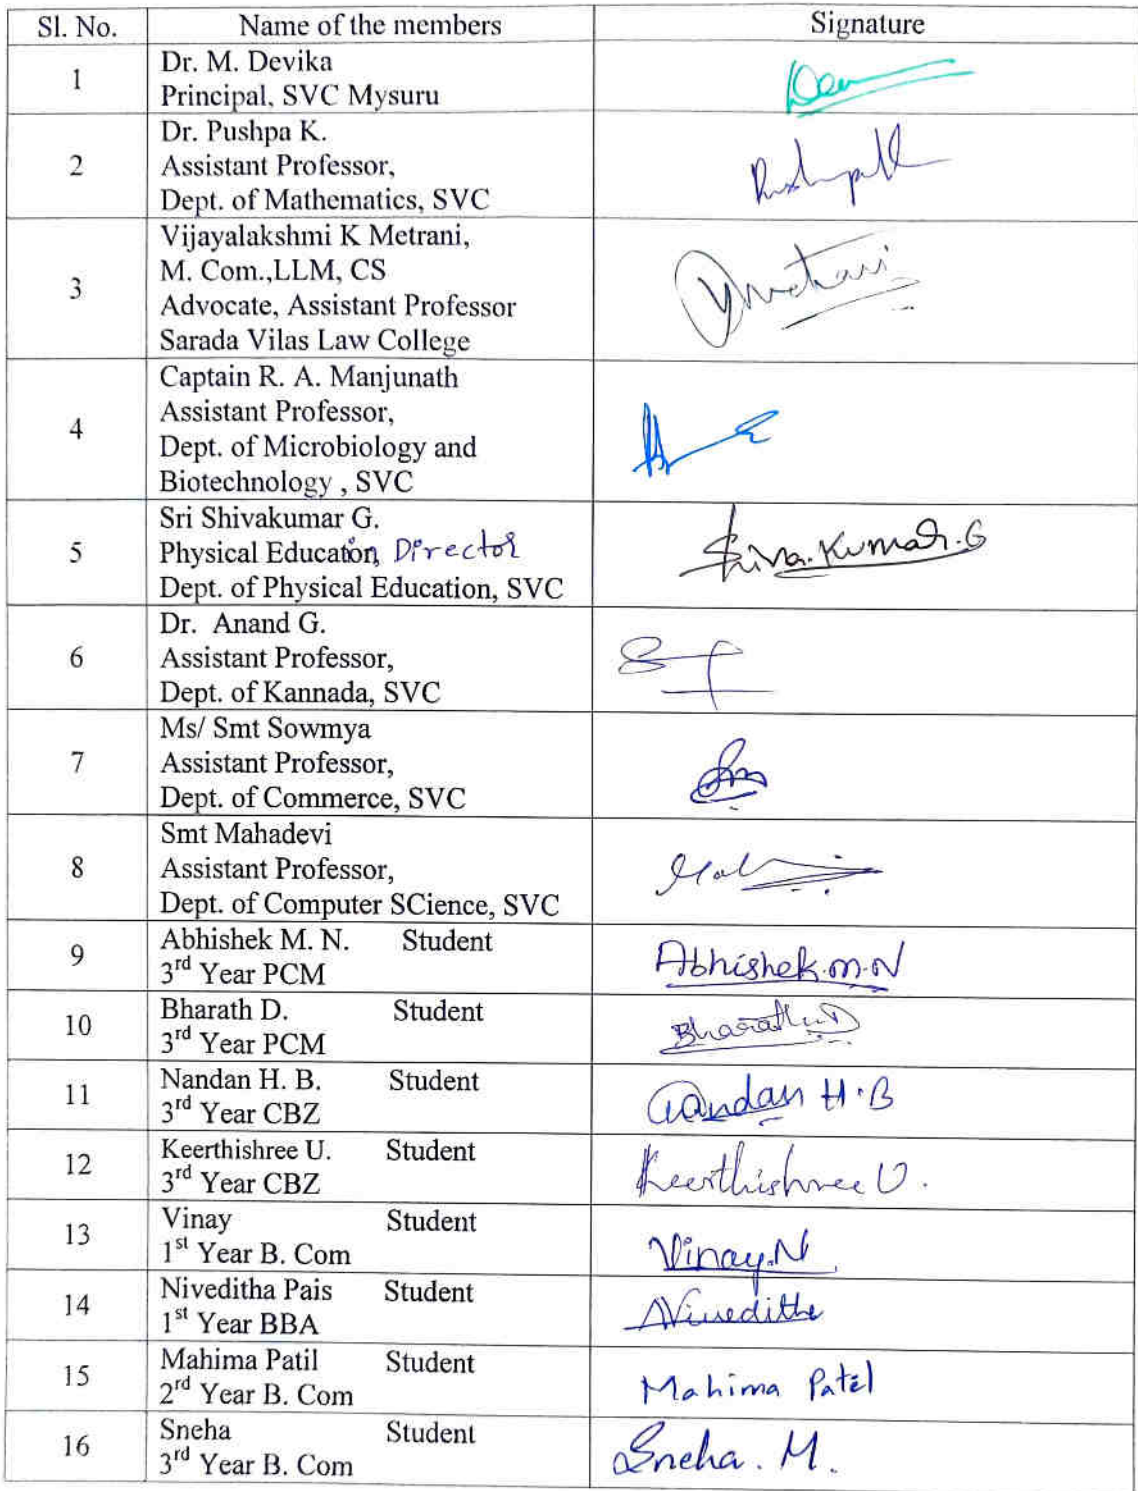 Sl. No. Name of the members Signature
1 Dr. M. Devika
Principal, SVC Mysuru
2 Dr. Pushpa K.
Assistant Professor,
Dept. of Mathematics, SVC
3 Vijayalakshmi K Metrani,
M. Com.,LLM, CS
Advocate, Assistant Professor
Sarada Vilas Law College
4 Captain R. A. Manjunath
Assistant Professor,
Dept. of Microbiology and
Biotechnology , SVC
5 Sri Shivakumar G. Shiva.Kumar.G
Physical Education, Director
Dept. of Physical Education, SVC
6 Dr. Anand G.
Assistant Professor,
Dept. of Kannada, SVC
7 Ms/ Smt Sowmya
Assistant Professor,
Dept. of Commerce, SVC
8 Smt Mahadevi
Assistant Professor,
Dept. of Computer SCience, SVC
9 Abhishek M. N. Student Abhishek.M.N
3rd Year PCM
10 Bharath D. Student Bharath.D
3rd Year PCM
11 Nandan H. B. Student Nandan H.B
3rd Year CBZ
12 Keerthishree U. Student Keerthishree U.
3rd Year CBZ
13 Vinay Student Vinay.N
1st Year B. Com
14 Niveditha Pais Student Niveditha
1st Year BBA
15 Mahima Patil Student Mahima Patil
2rd Year B. Com
16 Sneha Student Sneha. M.
3rd Year B. Com